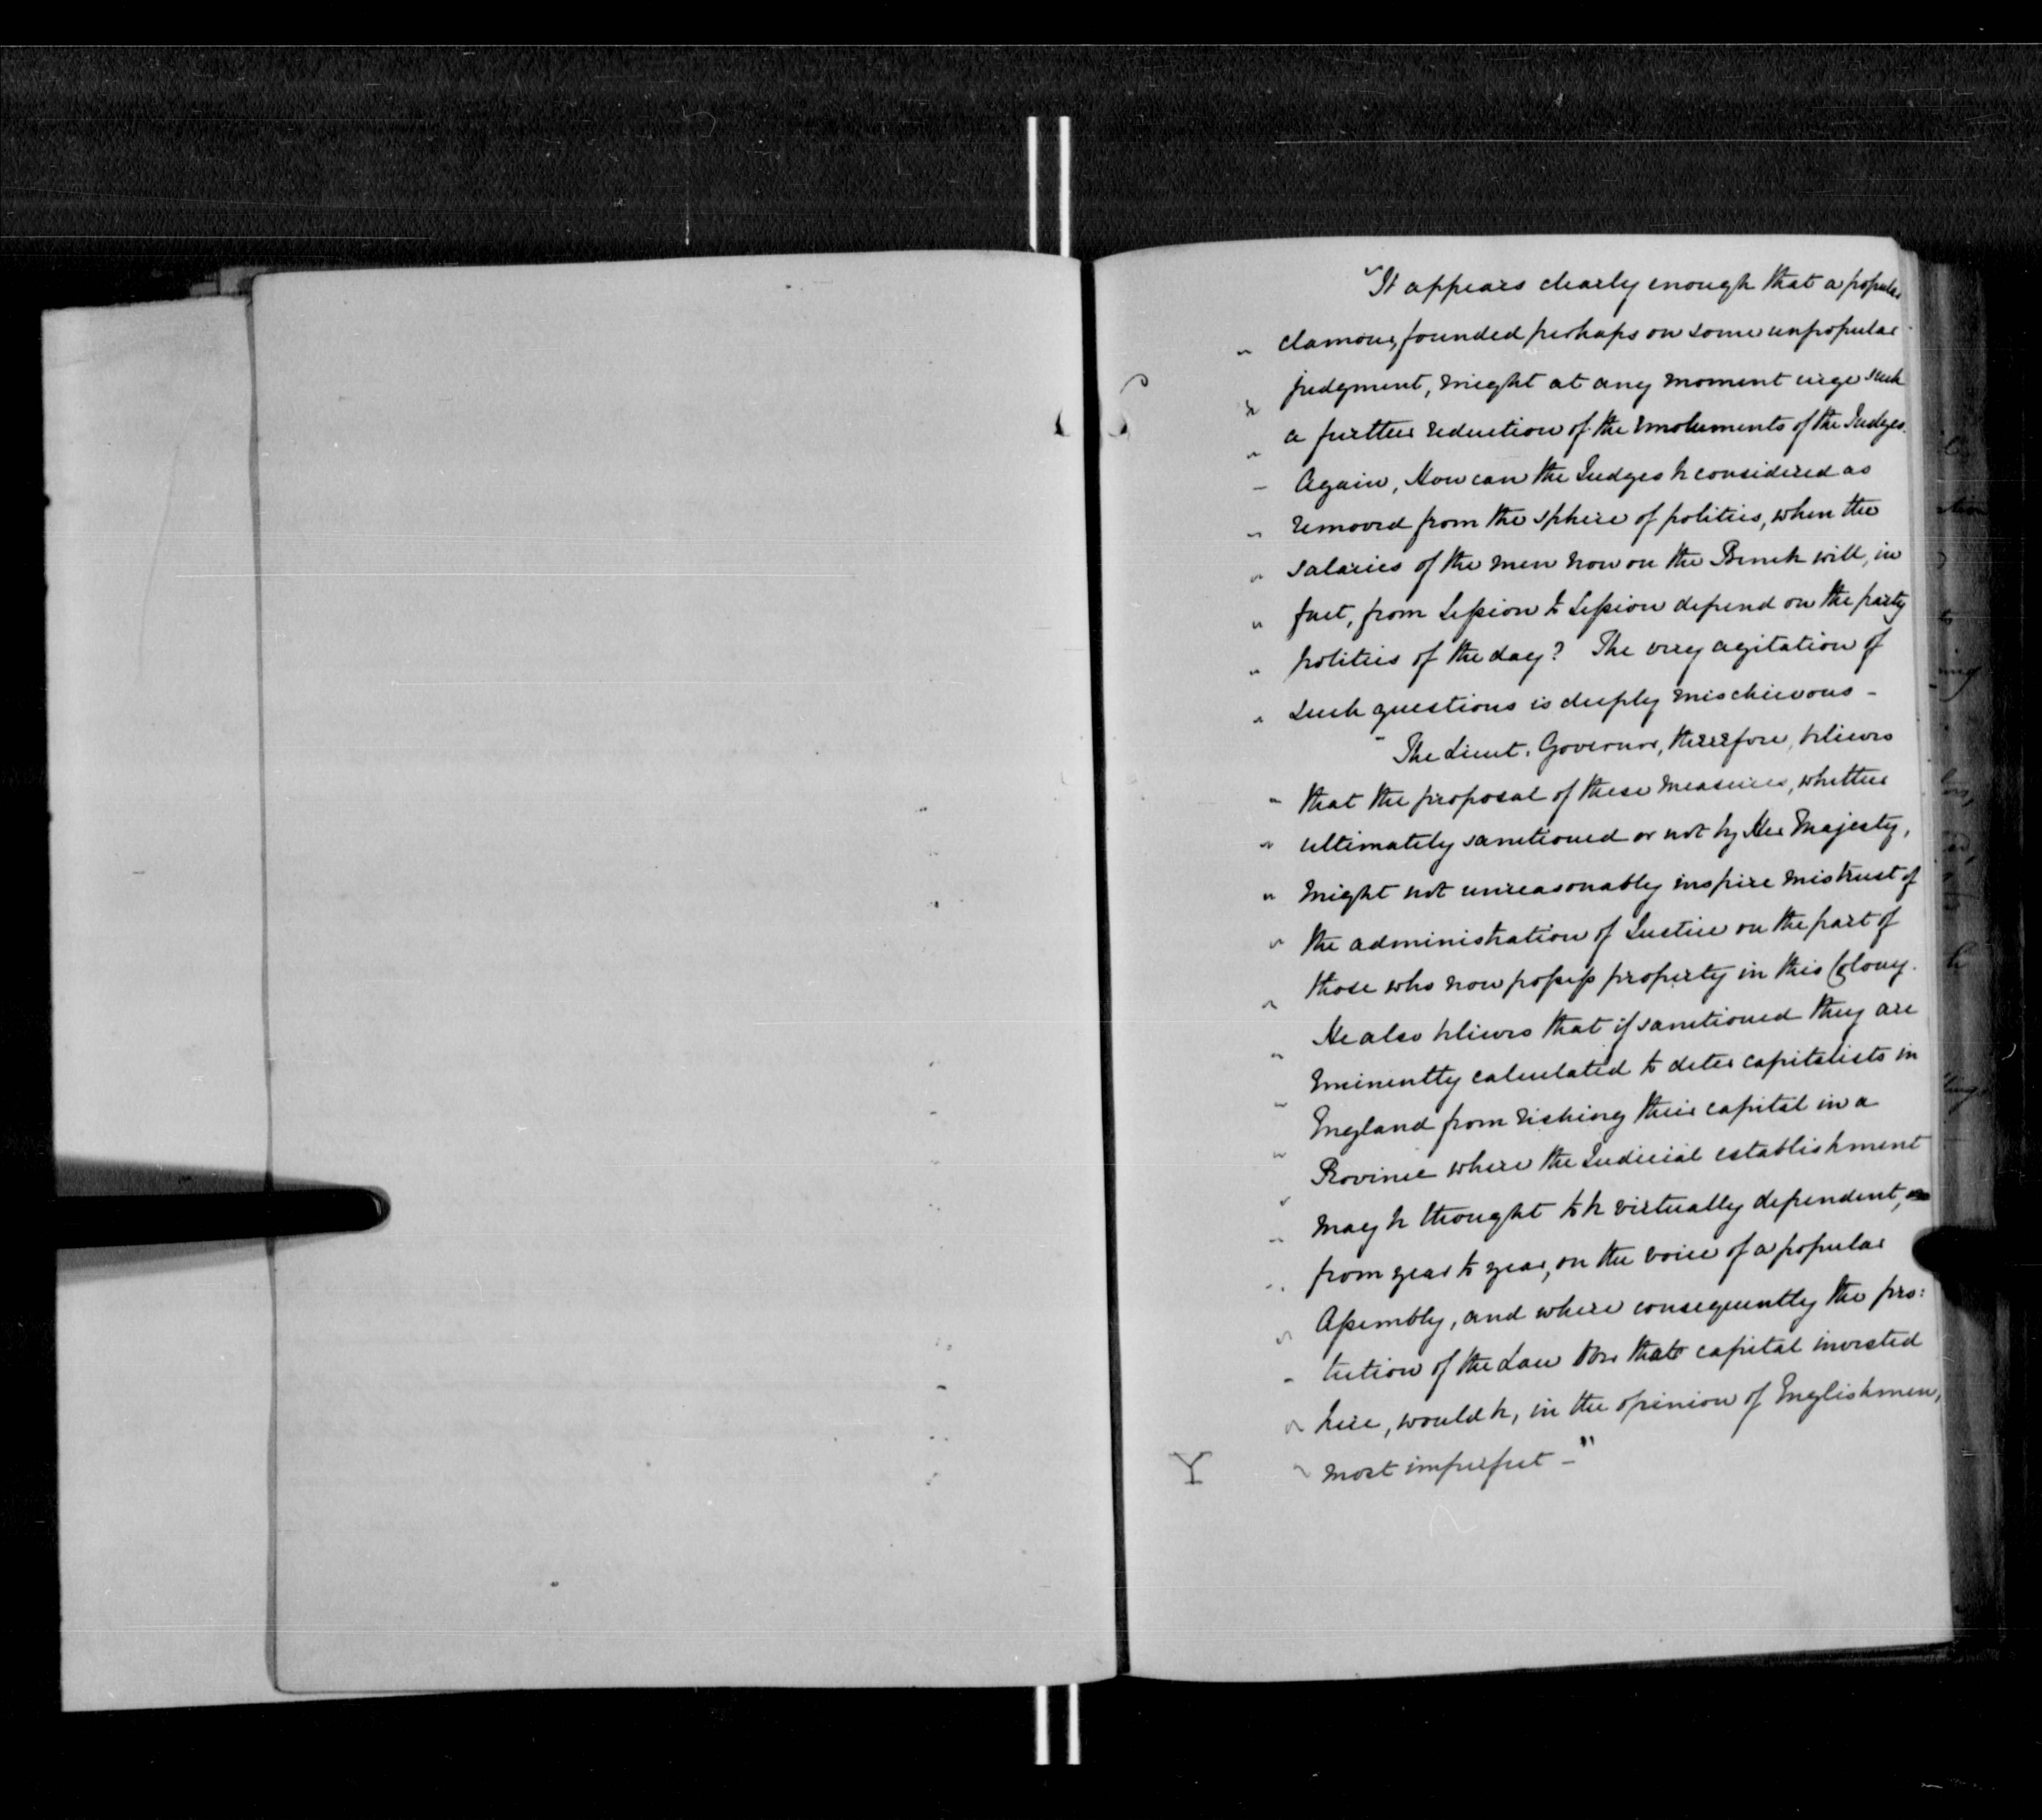 "It appears clearly enough that a popular
" clamour, founded perhaps on some unpopular
" judgment, might at any moment urge such
" a further reduction of the emoluments of the Judges.
— Again, How can the Judges be considered as
" removed from the sphere of politics, when the
" salaries of the men now on the Bench will, in
" fact, from Session to Session depend on the party
" politics of the day? The very agitation of
" such questions is deeply mischievous –
" The Lieut. Governor, therefore, believes
" that the proposal of these measures, whether
" ultimately sanctioned or not by Her Majesty,
" might not unreasonably inspire mistrust of
" the administration of Justice on the part of
" those who now possess property in this Colony.
" He also believes that if sanctioned they are
" eminently calculated to deter capitalists in
" England from risking their capital in a
" Province where the Judicial establishment
" may be thought to be virtually dependent,
" from year to year, on the voice of a popular
" Assembly, and where consequently the pro:
" tection of the Law over that capital invested
" here, would be, in the opinion of Englishmen,
Y " most imperfect – "